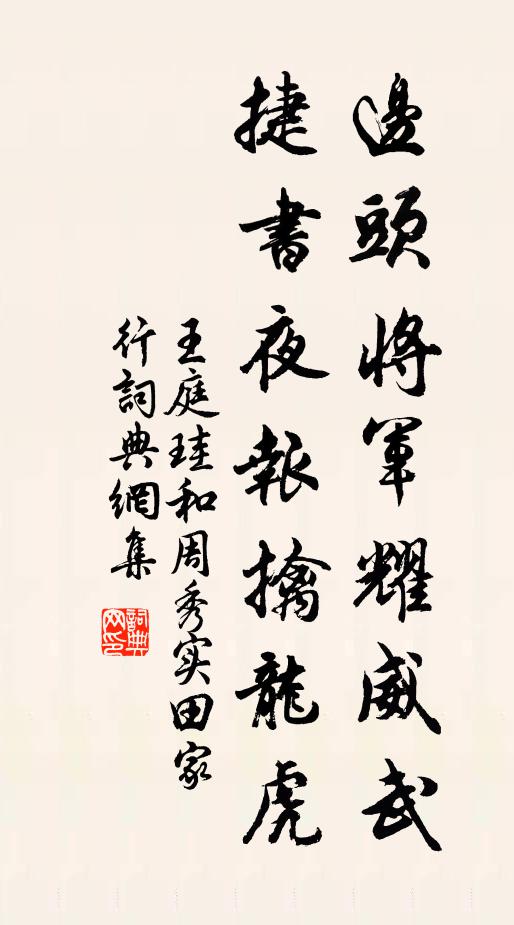 邊頭將軍耀威武
捷書夜報擒龍虎
王庭珪和周秀实田家
行詞典網集
詞典网印